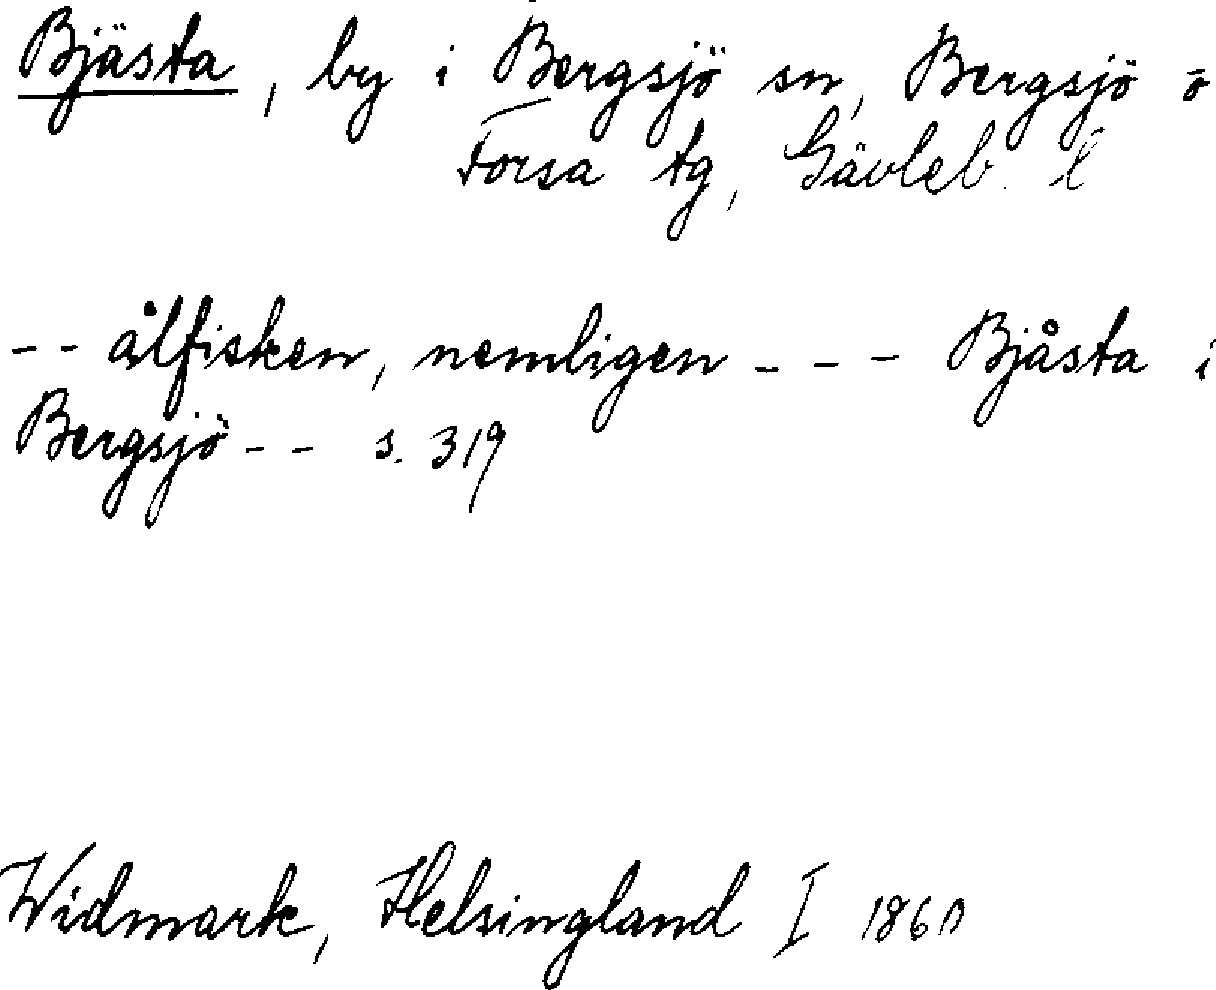 Bjästa, by i Bergsjö sn, Bergsjö o
Forsa tg, Gävleb. l
-- ålfisken, nemligen --- Bjåsta i
Bergsjö -- s. 319
Widmark, Helsingland I 1860